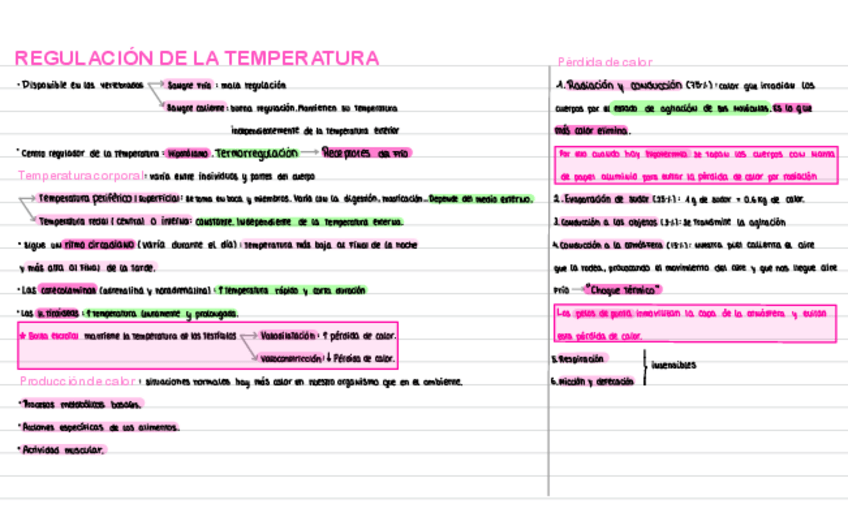 REGULACIÓN DE LA TEMPERATURA
· Disponible en los vertebrados
Sangre fría : mala regulación
Sangre caliente : buena regulación. Mantienen su temperatura
independientemente de la temperatura exterior
· Centro regulador de la temperatura : Hipotálamo. Termorregulación → Receptores de frío
Temperatura corporal: varía entre individuos y partes del cuerpo
Temperatura periférica (superficial): se toma en boca y miembros. Varía con la digestión, masticación... Depende del medio externo.
Temperatura rectal (central) o interna: constante. Independiente de la temperatura externa.
· Sigue un ritmo circadiano (varía durante el día) : temperatura más baja al final de la noche
y más alta al final de la tarde.
· Las catecolaminas (adrenalina y noradrenalina) : ↑ temperatura rápido y corta duración
· Las h. tiroideas : ↑ temperatura lentamente y prolongada.
★ Bolsa escrotal mantiene la temperatura de los testículos
Vasodilatación : ↑ pérdida de calor.
Vasoconstricción : ↓ Pérdida de calor.
Producción de calor : situaciones normales hay más calor en nuestro organismo que en el ambiente.
· Procesos metabólicos basales.
· Acciones específicas de los alimentos.
· Actividad muscular.
Pérdida de calor
1. Radiación y conducción (75%) : calor que irradian los
cuerpos por el estado de agitación de sus moléculas. Es lo que
más calor elimina.
Por eso cuando hay hipotermia se tapan los cuerpos con manta
de papel aluminio para evitar la pérdida de calor por radiación
2. Evaporación de sudor : 1g de sudor = 0.6 Kg de calor.
3. Conducción a los objetos (3%): se transmite la agitación
4. Conducción a la atmósfera (15%) : nuestra piel calienta el aire
que la rodea, provocando el movimiento del aire y que nos llegue aire
frío → "Choque térmico"
Los pelos de punta inmovilizan la capa de la atmósfera y evitan
esta pérdida de calor.
5. Respiración
6. Micción y defecación
insensibles